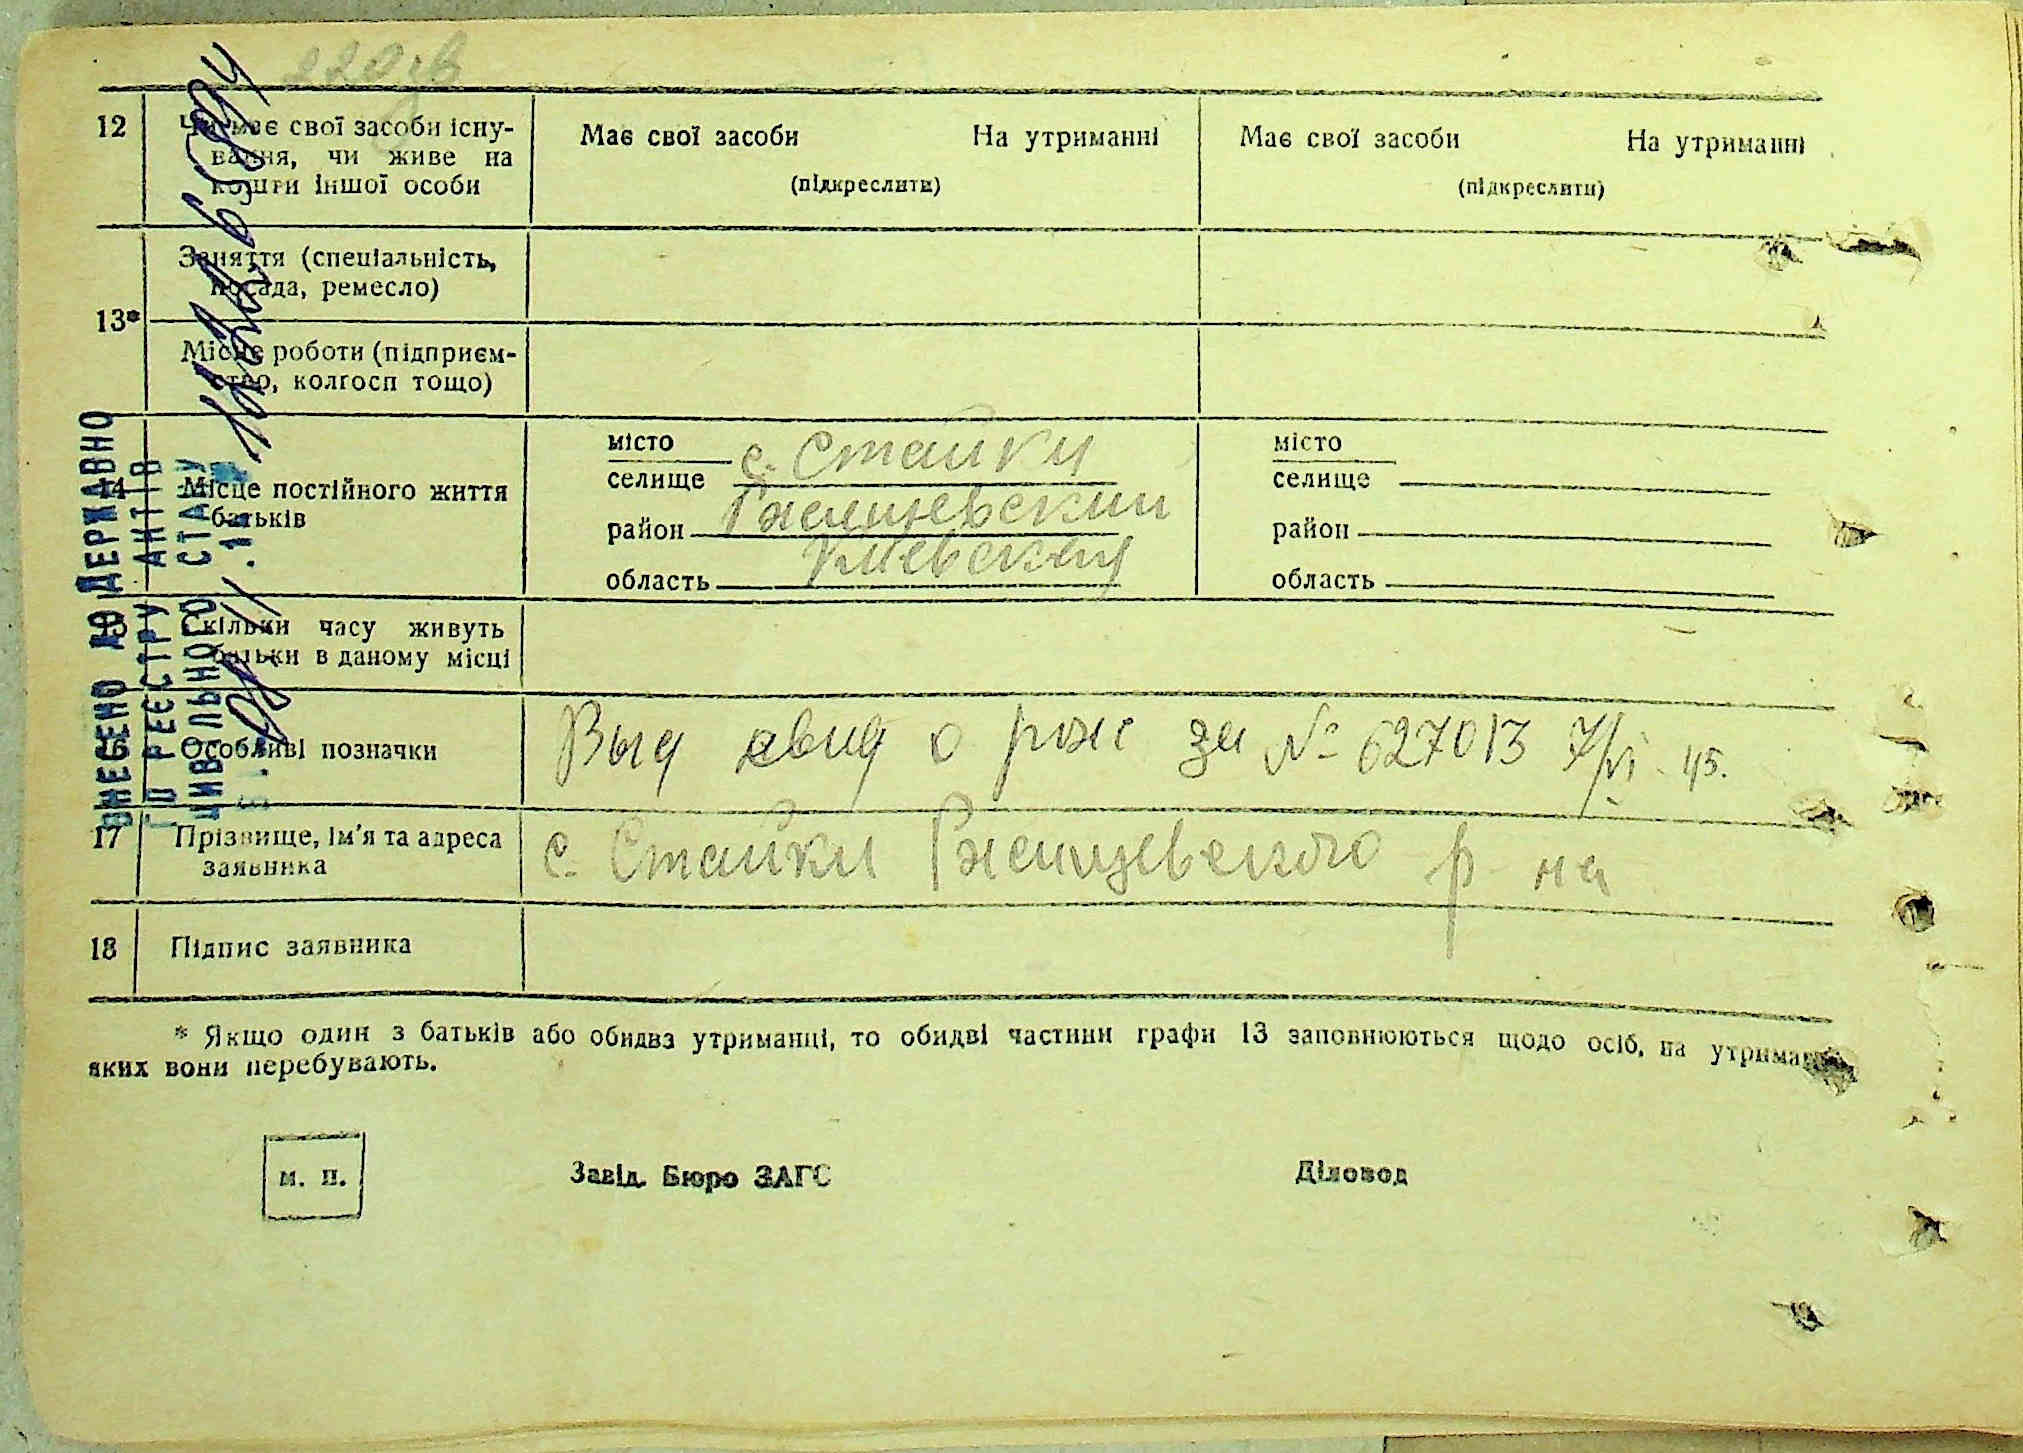 12
Чи має свої засоби існу-
вання, чи живе на
кошти іншої особи
Має свої засоби На утриманні
(підкреслити)
Має свої засоби На утриманні
(підкреслити)
13*
Заняття (спеціальність,
посада, ремесло)
Місце роботи (підприєм-
ство, колгосп тощо)
14
Місце постійного життя
батьків
місто
селище с. Стайки
район Ржищевский
область Киевская
місто
селище
район
область
15
Скільки часу живуть
батьки в даному місці
16
Особливі позначки
Выд свид о рож за № 627013 7/VI 45.
17
Прізвище, ім'я та адреса
заявника
с. Стайки Ржищевского р-на
18
Підпис заявника
* Якщо один з батьків або обидва утриманці, то обидві частини графи 13 заповнюються щодо осіб, на утриманні
яких вони перебувають.
м. п.
Завід. Бюро ЗАГС
Діловод
ВНЕСЕНО ДО ДЕРЖАВНО
ГО РЕЄСТРУ АКТІВ
ЦИВІЛЬНОГО СТАНУ